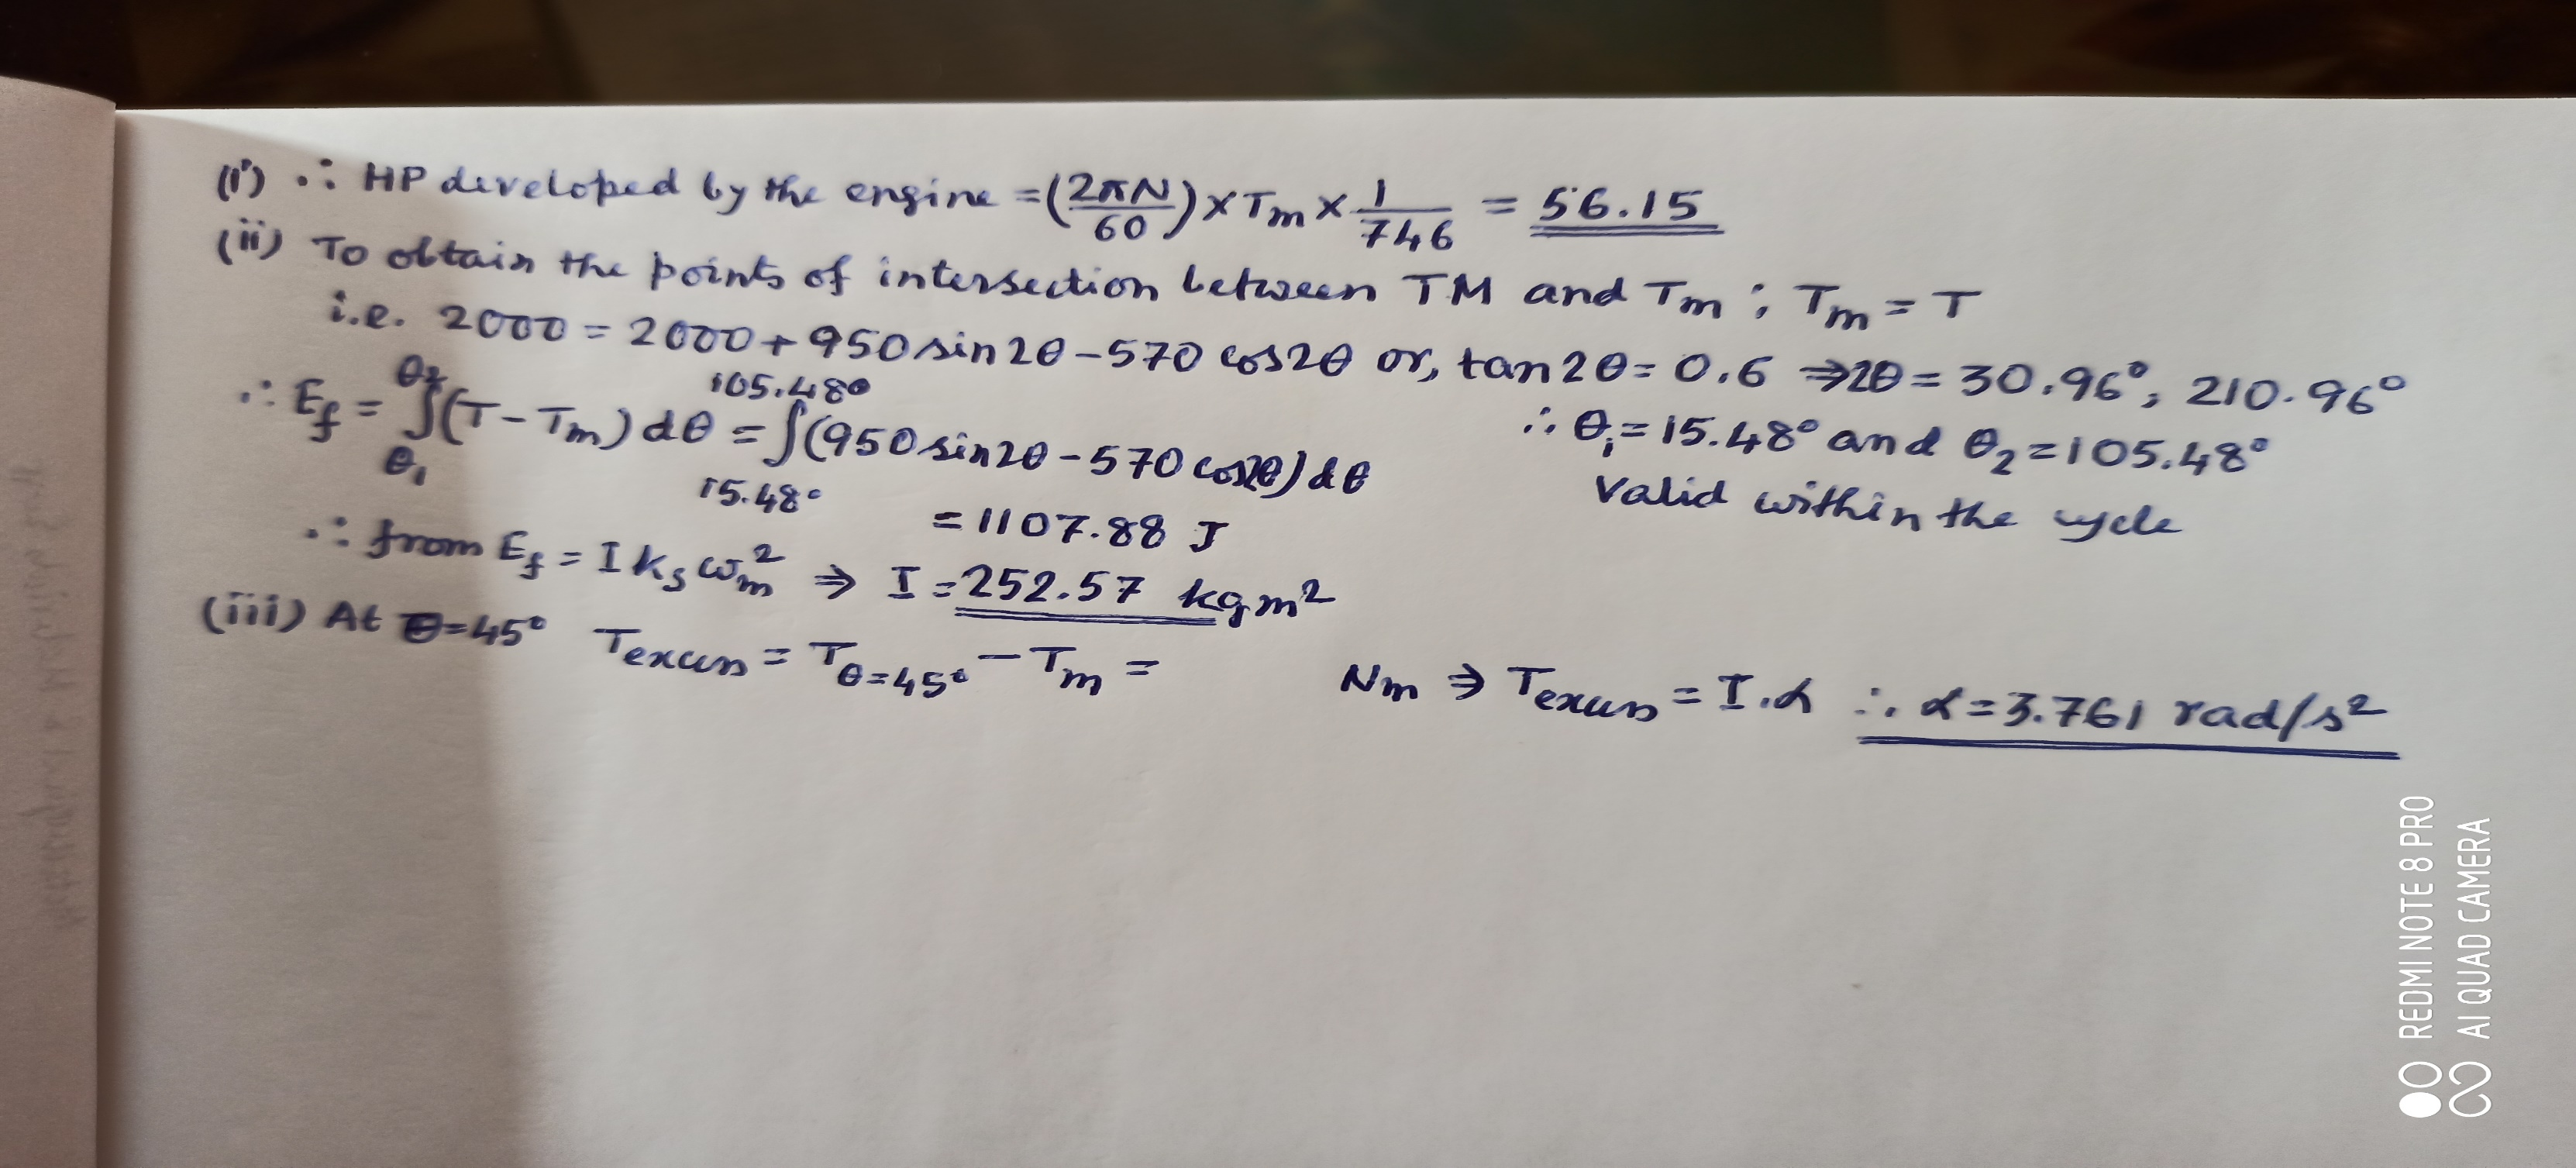 (i) ∴ HP developed by the engine = (2πN/60) × Tm × 1/746 = 56.15
(ii) To obtain the points of intersection between TM and Tm ; Tm = T
i.e. 2000 = 2000 + 950 sin2θ - 570 cos2θ or, tan2θ = 0.6 ⇒ 2θ = 30.96°, 210.96°
∴ θ₁ = 15.48° and θ₂ = 105.48°
valid within the cycle
∴ Ef = ∫θ₁^θ₂ (T - Tm) dθ = ∫15.48°^105.48° (950 sin2θ - 570 cos2θ) dθ
= 1107.88 J
∴ from Ef = I ks ωm² ⇒ I = 252.57 kgm²
(iii) At θ=45° Texcess = Tθ=45° - Tm = Nm ⇒ Texcess = I.α ∴ α = 3.761 rad/s²
REDMI NOTE 8 PRO
AI QUAD CAMERA